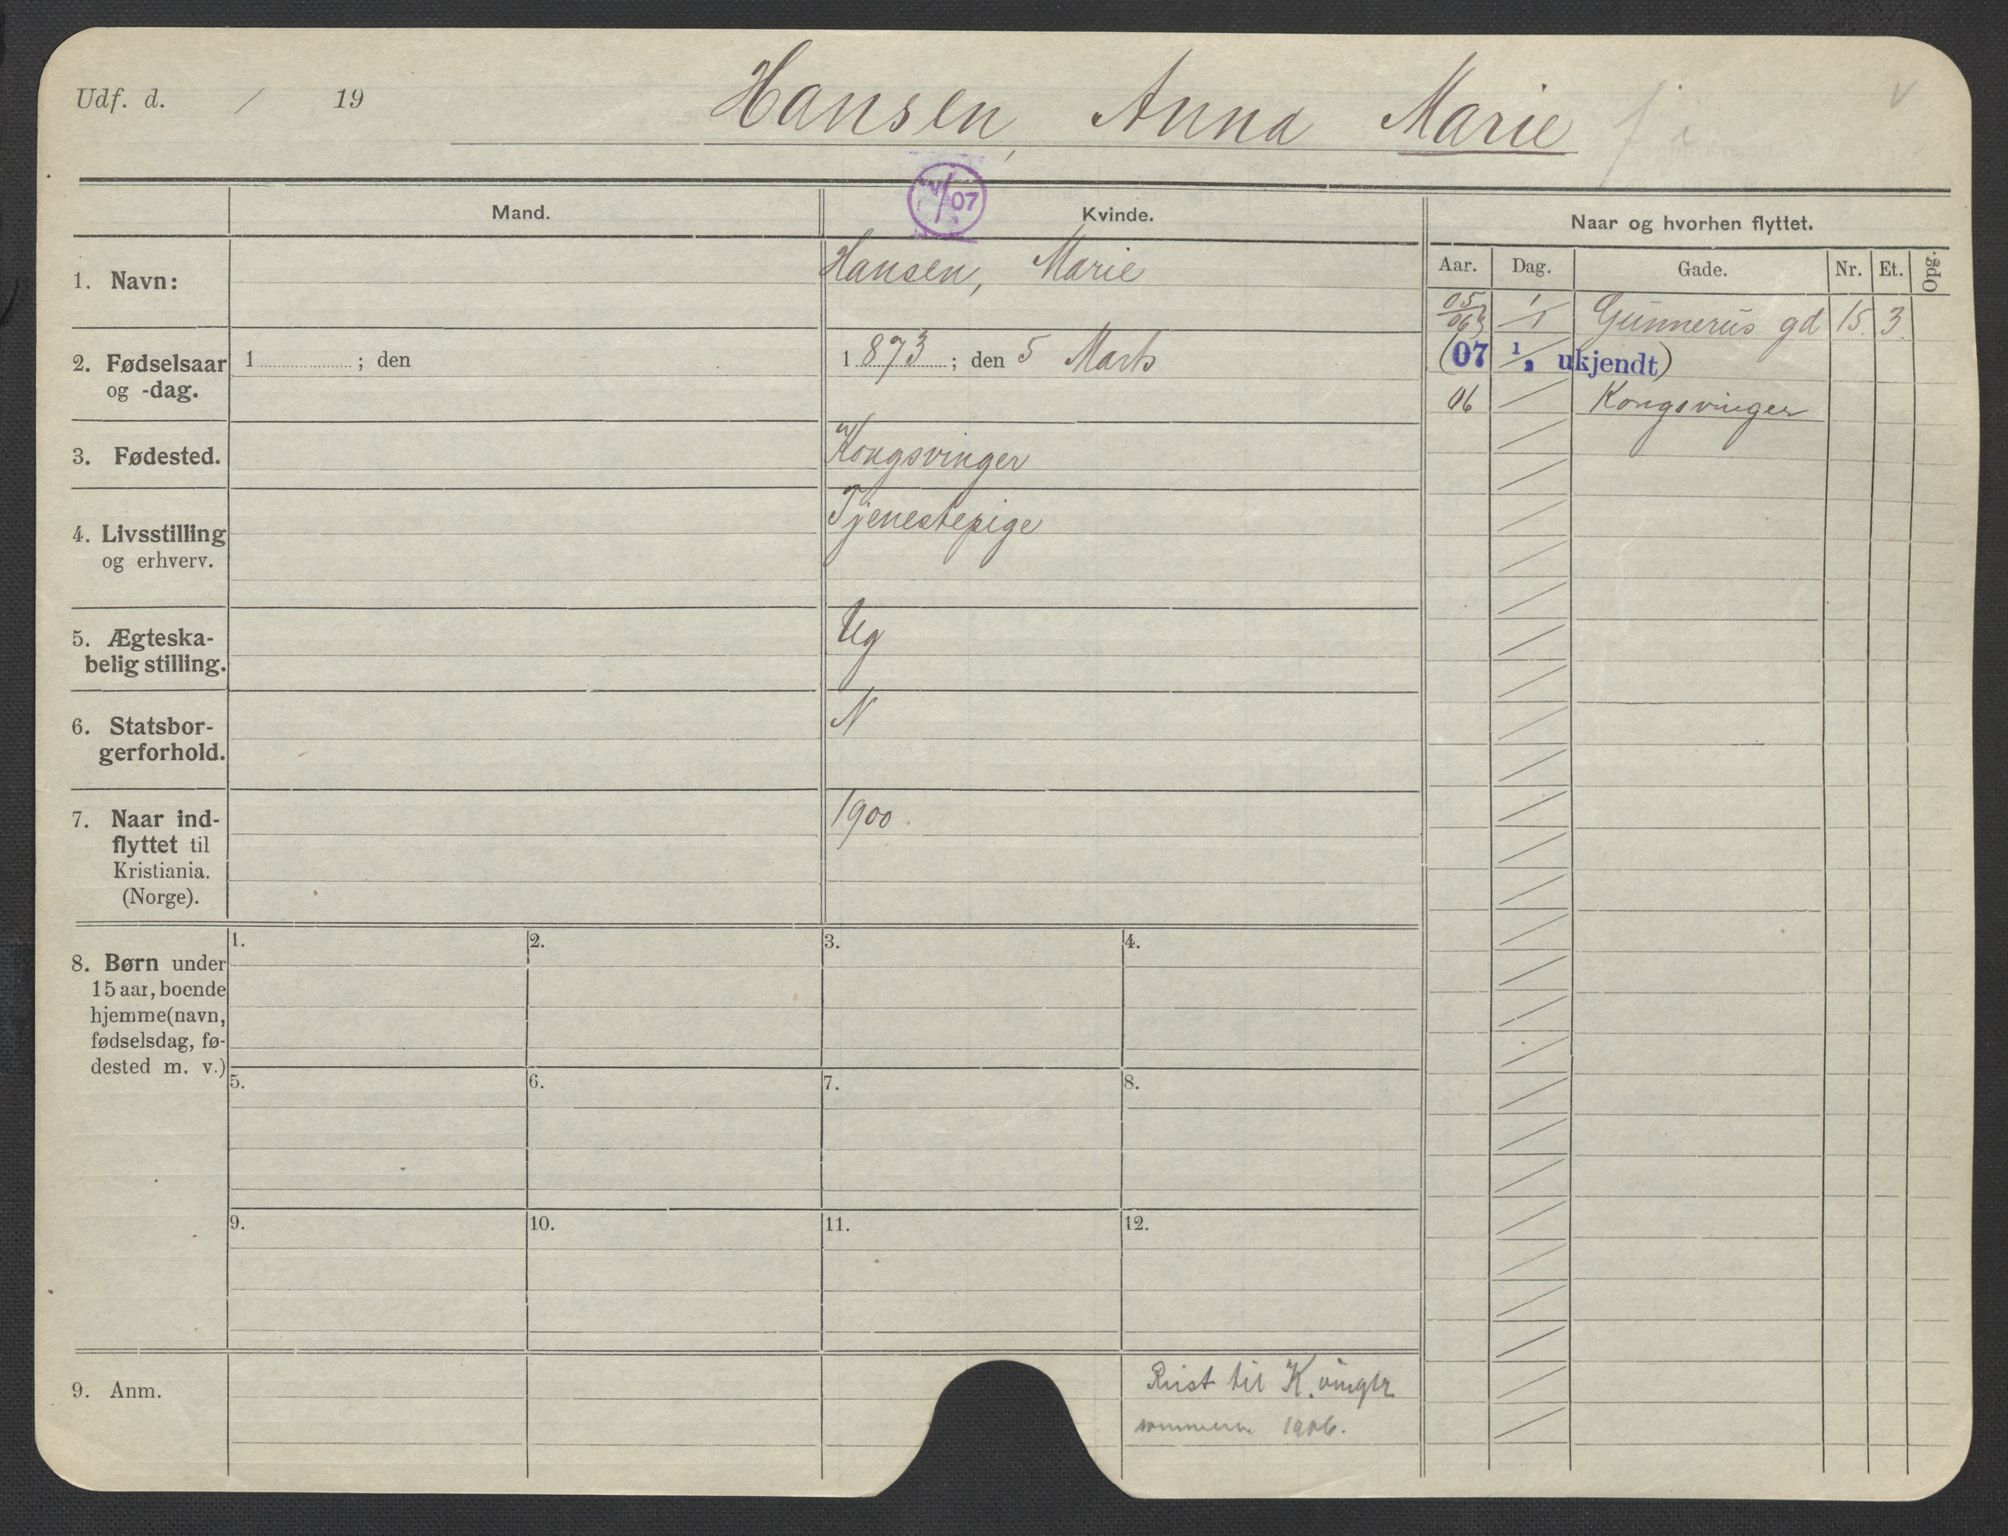 Udf. d. / 19
Hansen, Anna Marie
Mand.
Kvinde.
/07
Naar og hvorhen flyttet.
Aar. Dag. Gade. Nr. Et. Opg.
1. Navn:
Hansen, Marie
05/06 1/1 Gunnerus gd 15. 3.
2. Fødselsaar
og -dag.
1 ; den
1873 ; den 5 Marts
(07 1/2 ukjendt)
06 / Kongsvinger
3. Fødested.
Kongsvinger
4. Livsstilling
og erhverv.
Tjenestepige
5. Ægteska-
belig stilling.
Ug
6. Statsbor-
gerforhold.
N
7. Naar ind-
flyttet til
Kristiania.
(Norge).
1900.
8. Børn under
15 aar, boende
hjemme (navn,
fødselsdag, fø-
dested m. v.)
1. 2. 3. 4.
5. 6. 7. 8.
9. 10. 11. 12.
9. Anm.
Reist til K.vinger
sommeren 1906.